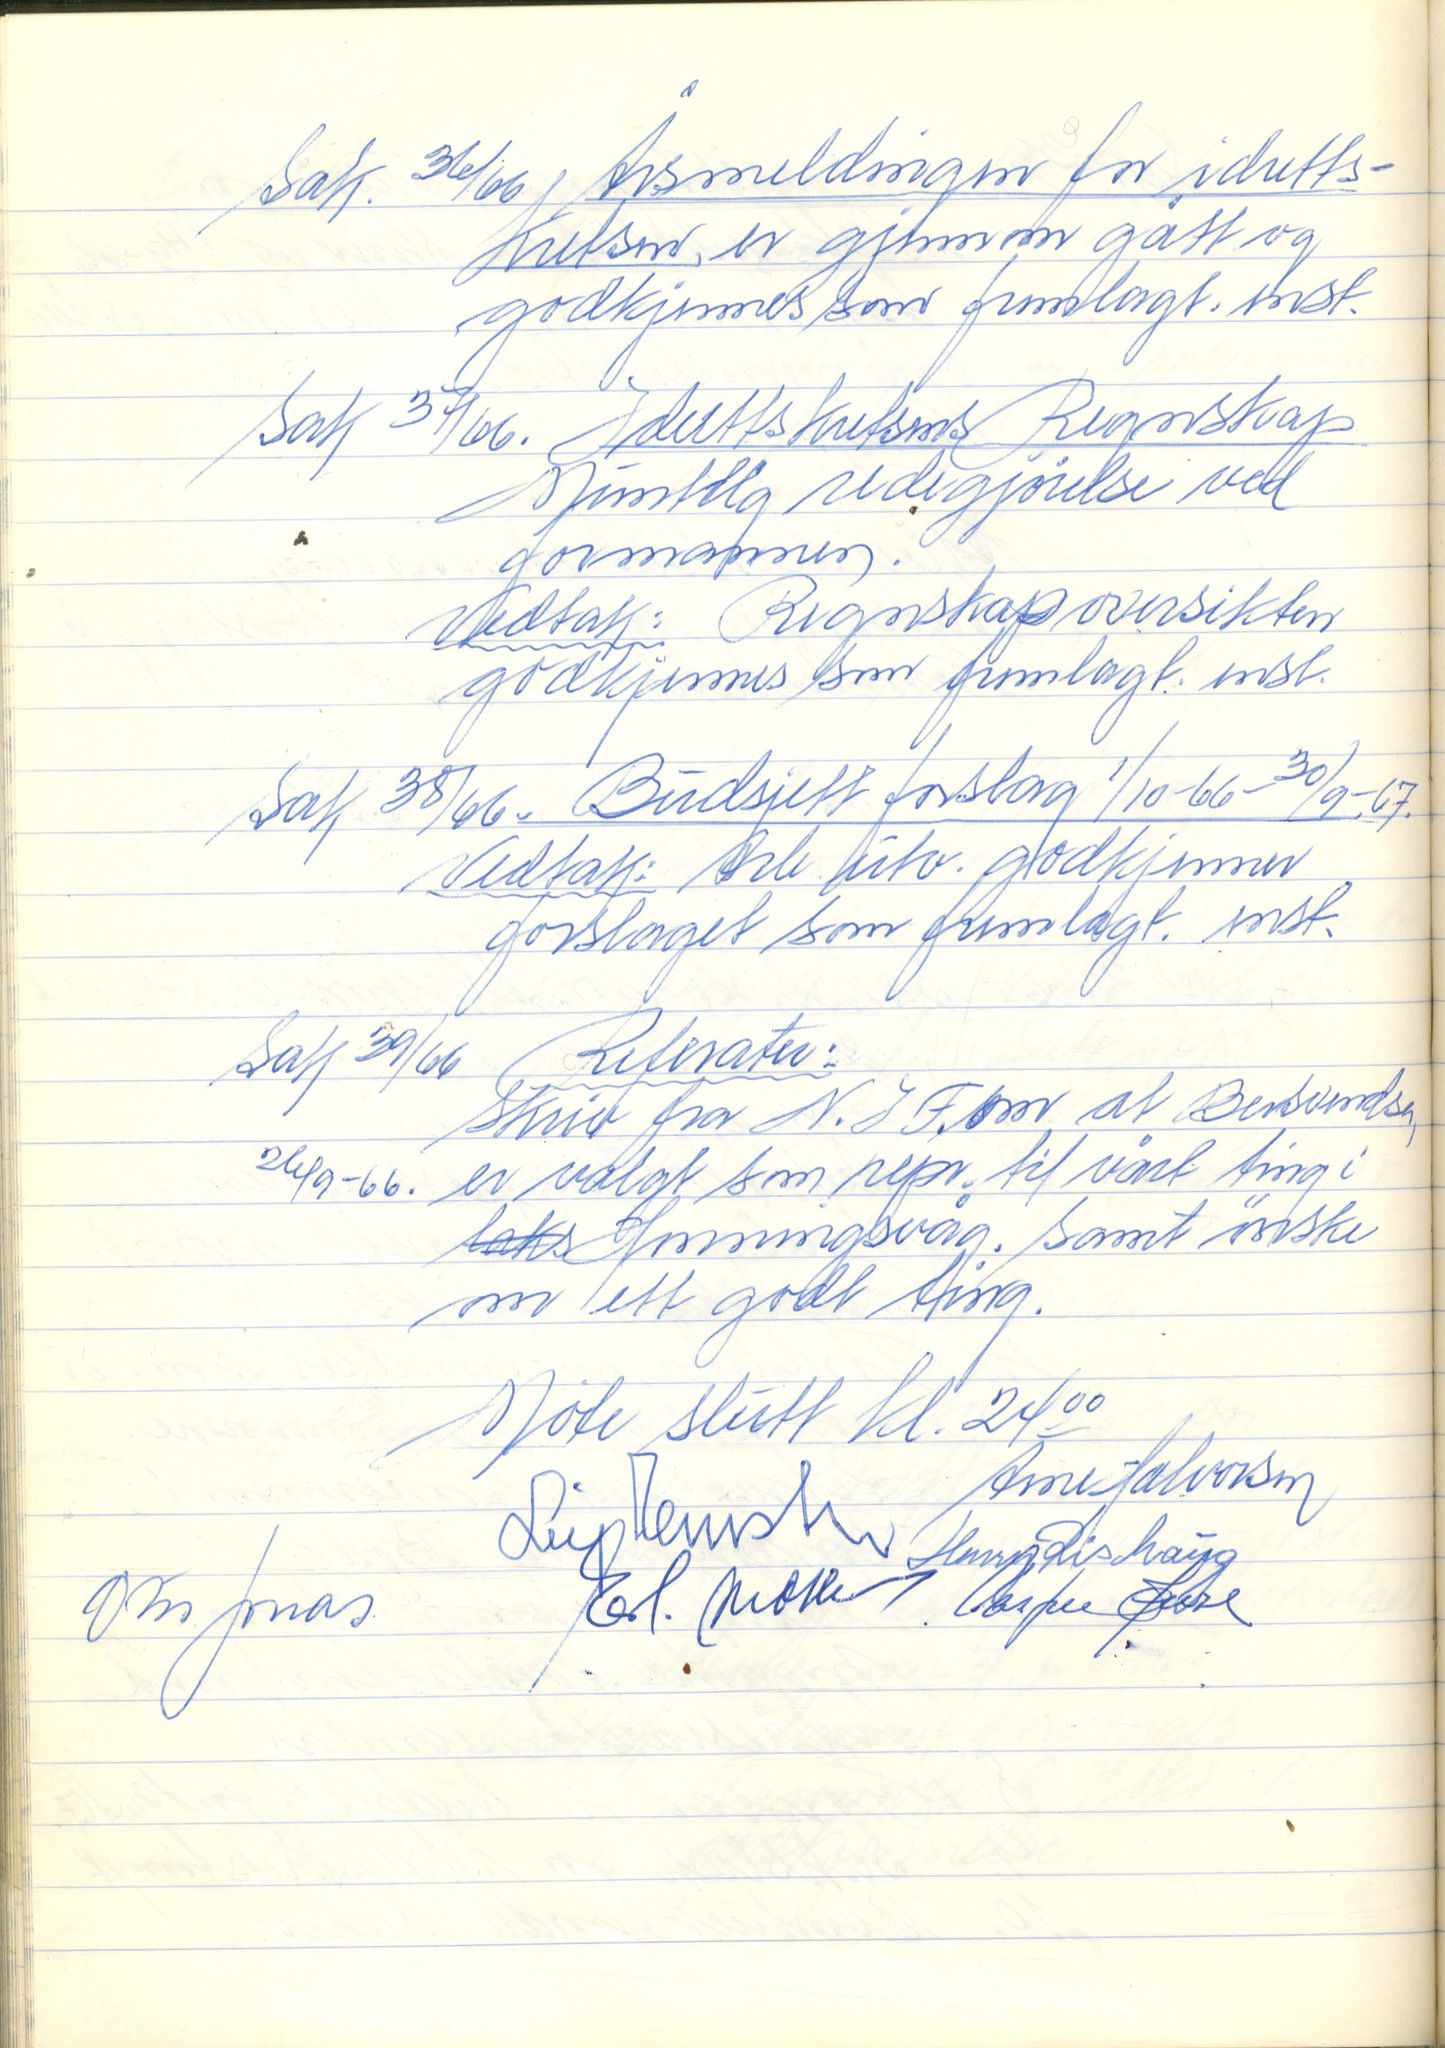 Sak. 36/66, Årsmeldingen for idretts-
kretsen, er gjennom gått og
godkjennes som fremlagt. enst.
Sak 37/66. Idrettskretsens Regnskap
Muntlig redegjørelse ved
formannen.
Vedtak: Regnskapoversikten
godkjennes som fremlagt. enst.
Sak 38/66. Budsjett forslag 1/10-66-30/9-67.
Vedtak: Arb. utv. godkjenner
forslaget som fremlagt. enst.
Sak 39/66 Referater:
Skriv fra N.I.F. om at Bersvendsen,
26/9-66. er valgt som repr. til vårt ting i
Honningsvåg. Samt önske
om ett godt ting.
Möte slutt kl. 24 00
Arne Halvorsen
Leif
Henry Lishaug
Jonas
Erl.